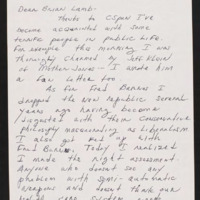 Dear Brian Lamb -
Thanks to CSPAN I've
become acquainted with some
terrific people in public life.
For example this morning I was
thoroughly charmed by Jeff Klein
of Mother Jones - I wrote him
a fan letter too
As for Fred Barnes I
dropped the New Republic several
years ago having become
disgusted with their conservative
philosophy masquerading as liberalism
I also got fed up with
Fred Barnes. Today I realized
I made the right assessment.
Anyone who doesn't see any
problem with semi-automatic
weapons and doesn't think gun